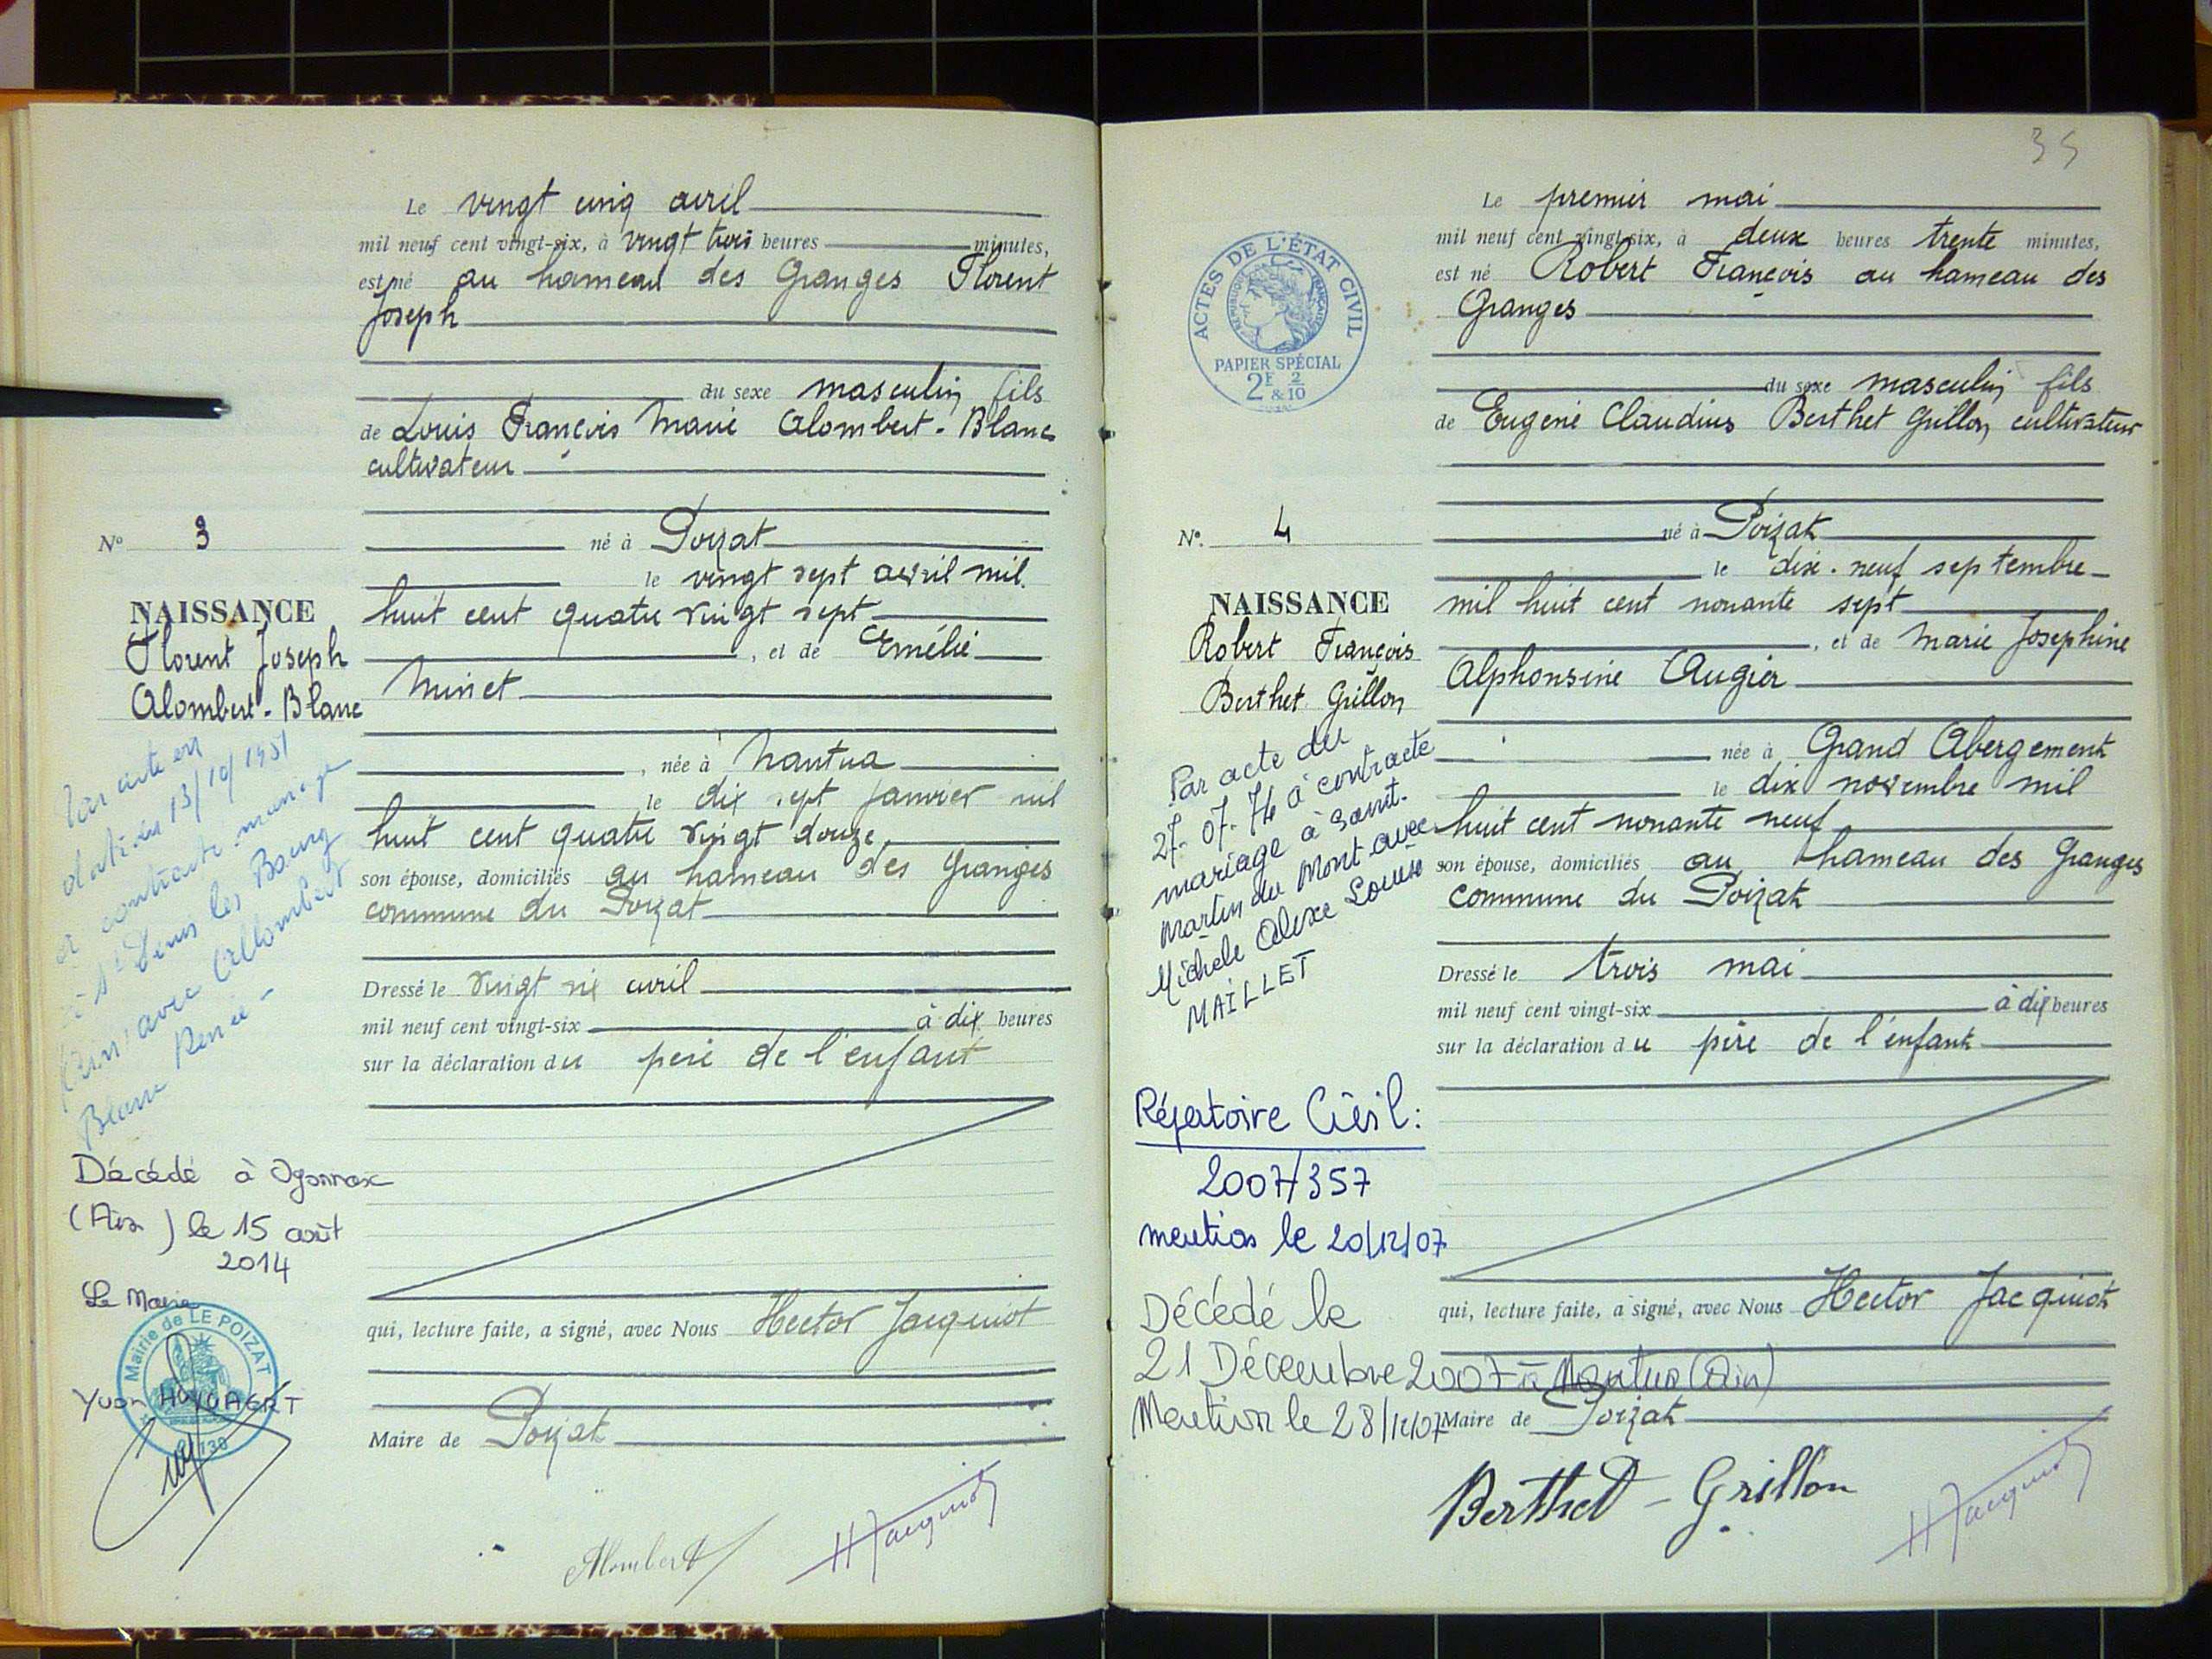 Le vingt cinq avril
mil neuf cent vingt-six, à vingt trois heures minutes,
est né au hameau des Granges Florent
Joseph
du sexe masculin fils
de Louis François Marie Alombert-Blanc
cultivateur
né à Poizat
le vingt sept avril mil
huit cent quatre vingt sept
, et de Emélie
Minet
, née à Nantua
le dix sept janvier mil
huit cent quatre vingt douze
son épouse, domiciliés au hameau des Granges
commune du Poizat
Dressé le vingt six avril
mil neuf cent vingt-six à dix heures
sur la déclaration du père de l'enfant
qui, lecture faite, a signé, avec Nous Hector Jacquiot
Maire de Poizat
Alombert
HJacquiot
No 3
NAISSANCE
Florent Joseph
Alombert-Blanc
Par acte en
date du 13/10/1951
a contracté mariage
à St Denis les Bourg
(Ain) avec Allombert
Blanc Renée -
Décédé à Oyonnax
(Ain) le 15 août
2014
Le Maire
Mairie de LE POIZAT
Yvan
35
Le premier mai
mil neuf cent vingt-six, à deux heures trente minutes,
est né Robert François au hameau des
Granges
du sexe masculin fils
de Eugène Claudius Berthet Grillon cultivateur
né à Poizat
le dix-neuf septembre
mil huit cent nonante sept
, et de Marie Josephine
Alphonsine Augier
née à Grand Abergement
le dix novembre mil
huit cent nonante neuf
son épouse, domiciliés au hameau des Granges
commune du Poizat
Dressé le trois mai
mil neuf cent vingt-six à dix heures
sur la déclaration du père de l'enfant
qui, lecture faite, a signé, avec Nous Hector Jacquiot
Maire de Poizat
Berthet-Grillon
HJacquiot
ACTES DE L'ÉTAT CIVIL
RÉPUBLIQUE FRANÇAISE
PAPIER SPÉCIAL
2F & 2/10
No. 4
NAISSANCE
Robert François
Berthet Grillon
Par acte du
27-07-74 a contracte
mariage à Saint-
Martin du Mont avec
Michele Alixe Louise
MAILLET
Répertoire Civil:
2007/357
mention le 20/12/07
Décédé le
21 Décembre 2007 à Nantua (Ain)
Mention le 28/12/07